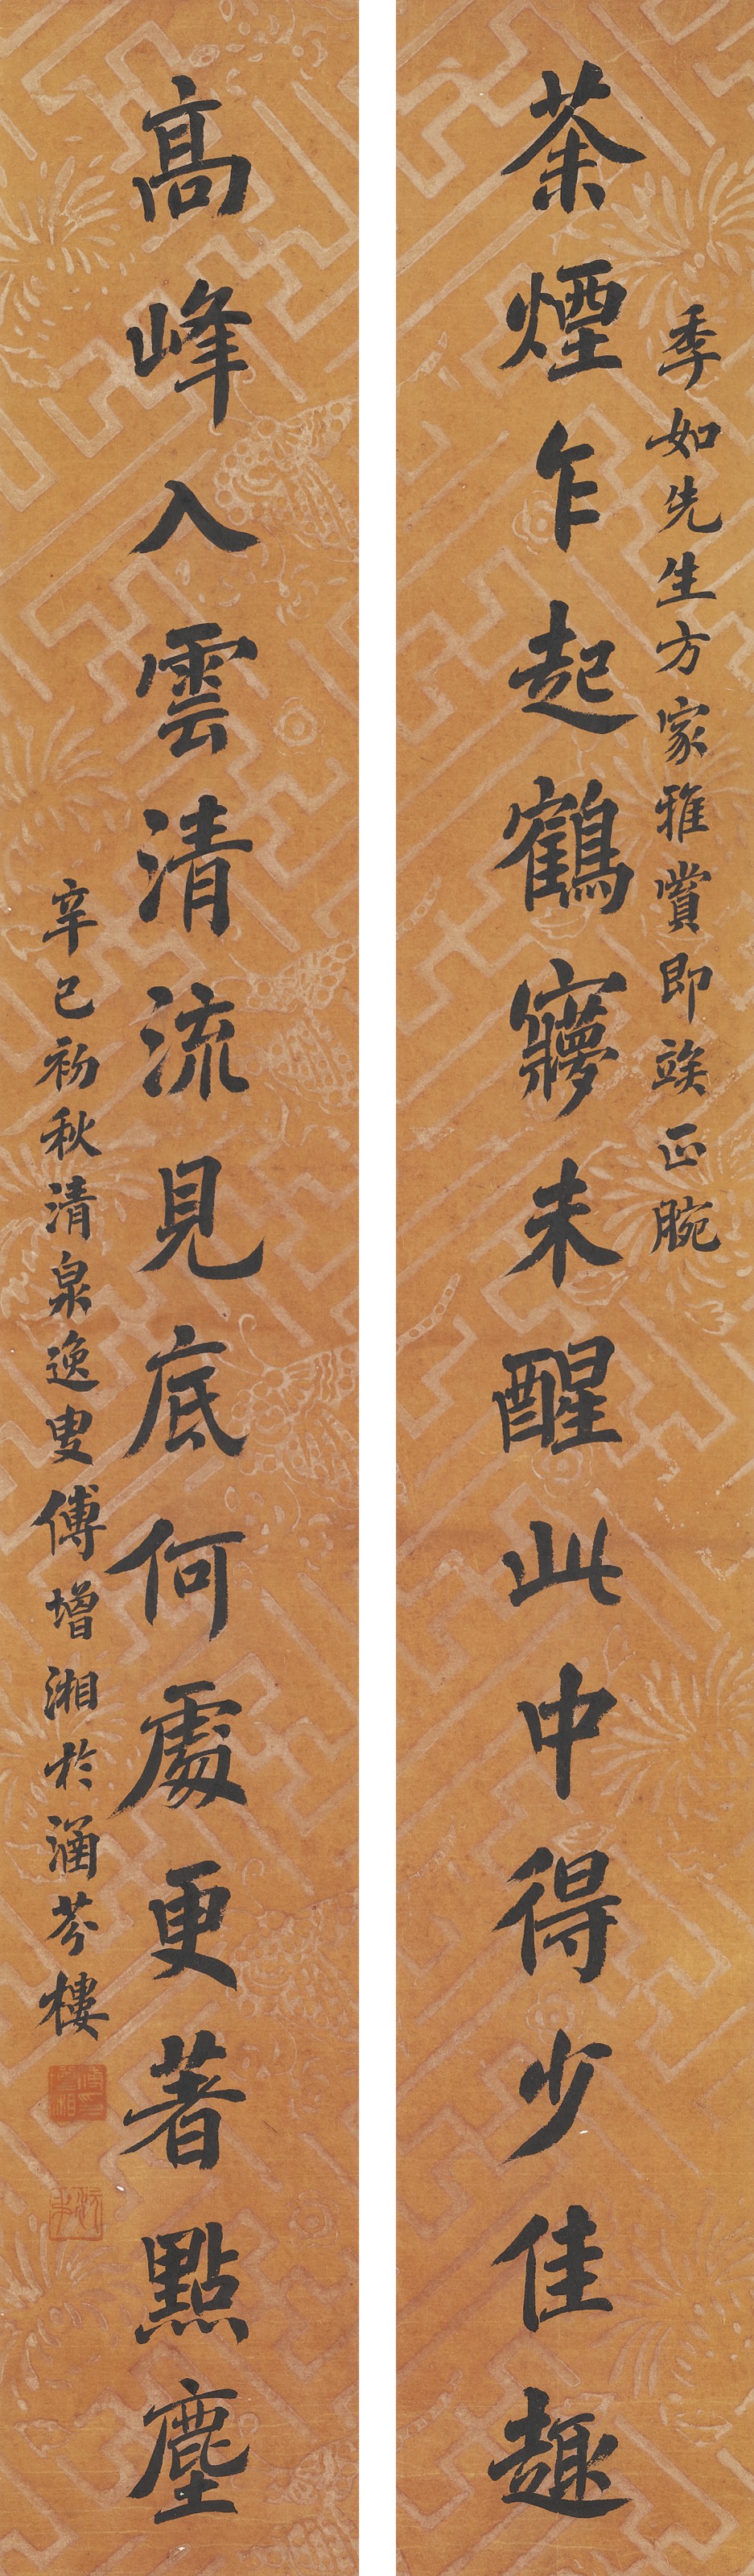 季如先生方家雅賞即竢正腕
茶煙乍起鶴寢未醒此中得少佳趣
高峰入雲清流見底何處更著點塵
辛巳初秋清泉逸叟傅增湘於涵芬樓
傅增湘印